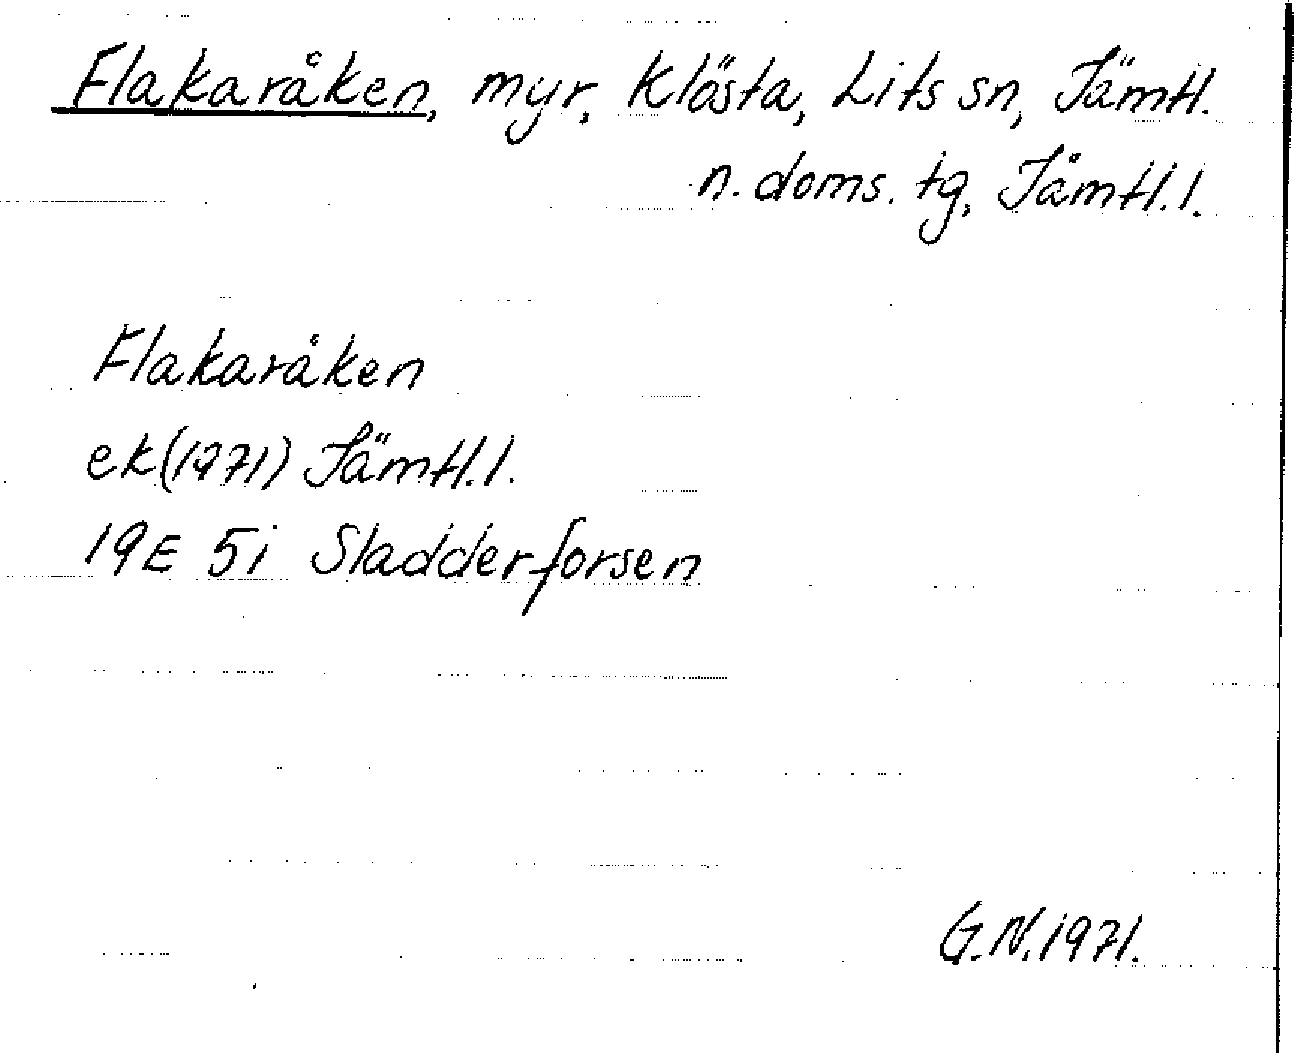 Flakaråken, myr, Klösta, Lits sn, Jämtl.
n. doms. tg, Jämtl. l.
Flakaråken
ek (1971) Jämtl. l.
19E 5i Sladderforsen
G.N. 1971.